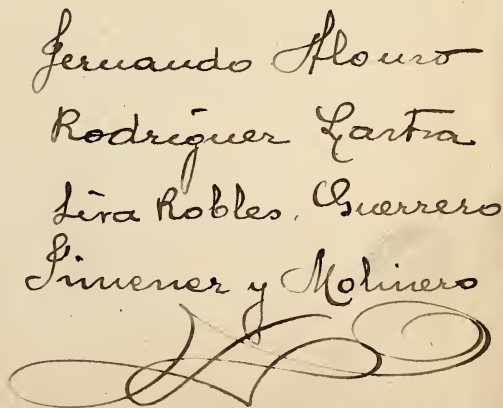 Fernando Alonso
Rodríguez Lastra
Lira Robles, Guerrero
Jimenez y Molinero